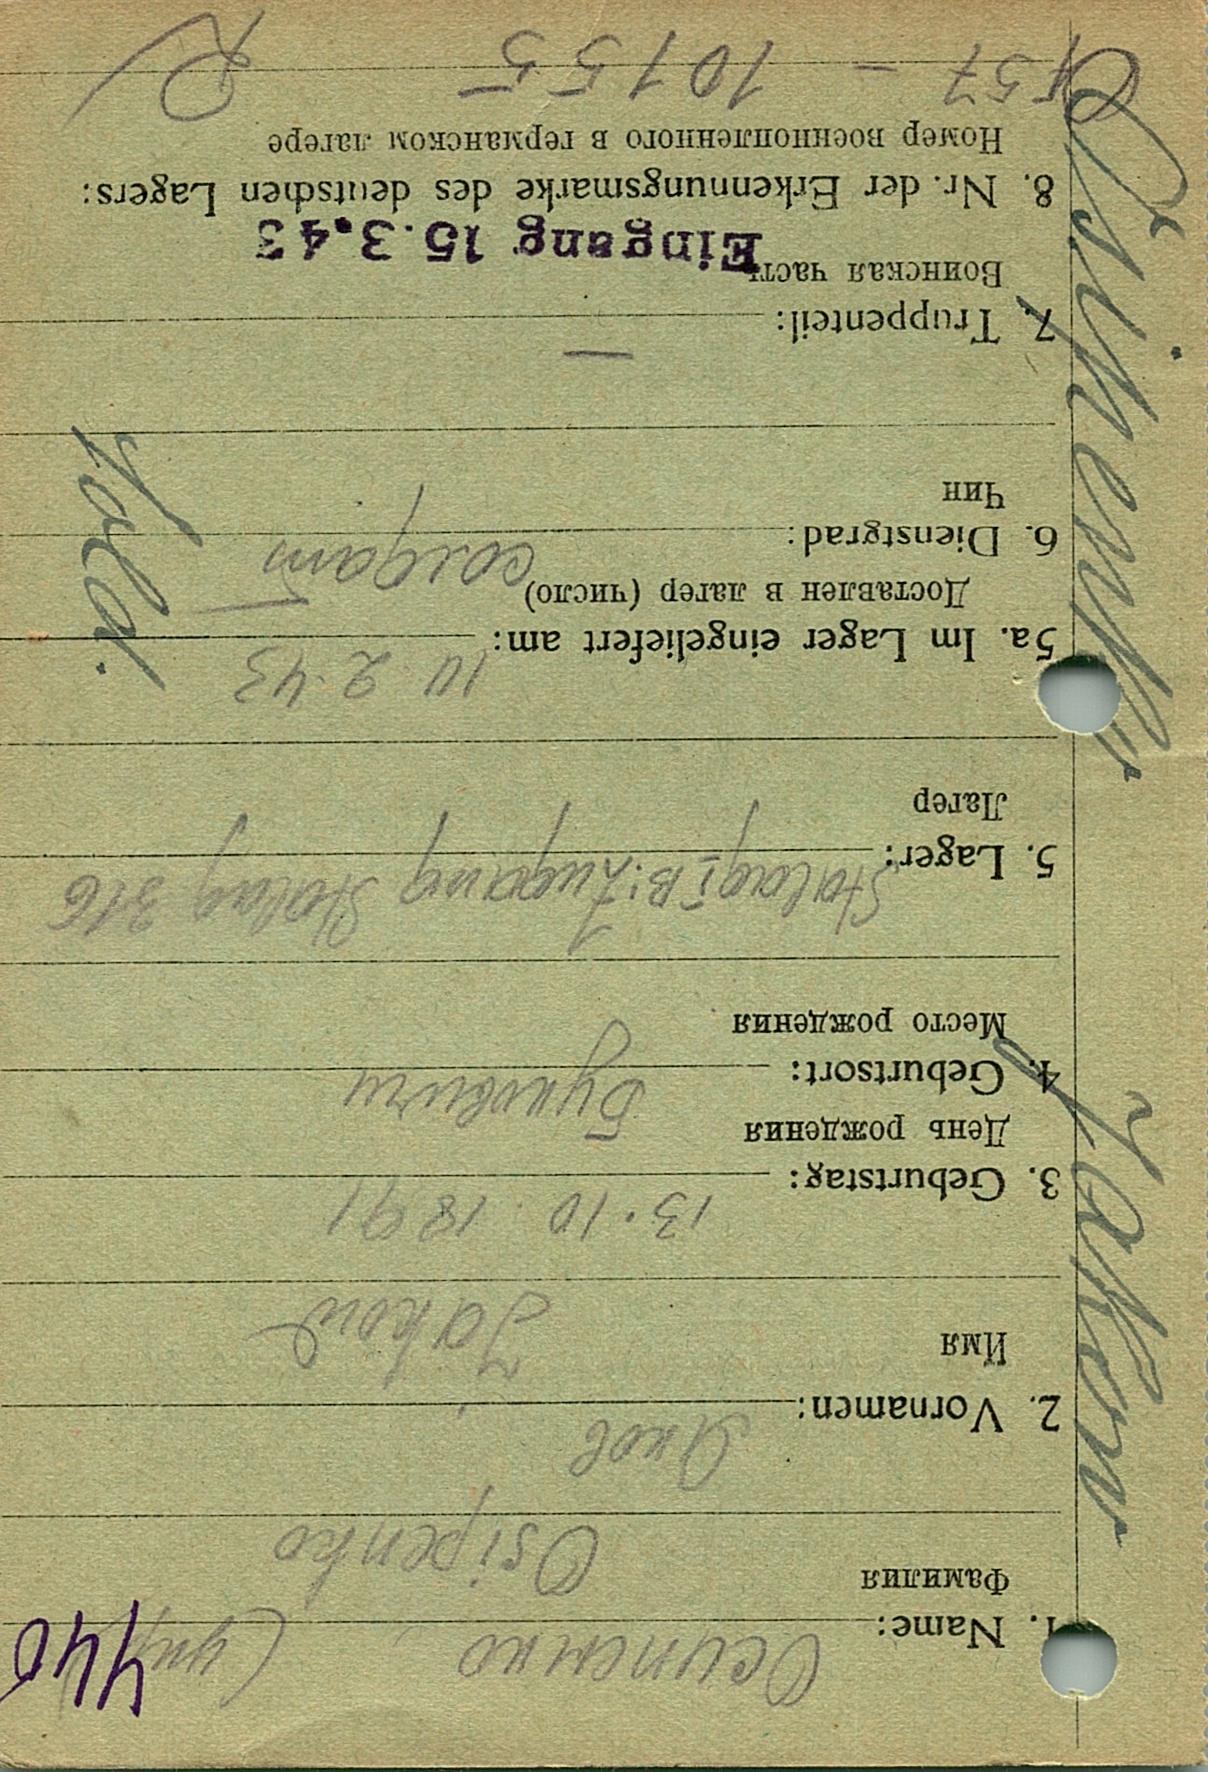 440
Осипенко
1. Name:
Фамилия
Osipenko
Яков
2. Vornamen:
Имя
Jakow
13.10.1891
3. Geburtstag:
День рождения
4. Geburtsort:
Место рождения
Stalag I B: Zugang Stalag 316
5. Lager:
Лагер
10 2.43
5a. Im Lager eingeliefert am:
Доставлен в лагер (число)
солдат
Sold.
6. Dienstgrad:
Чин
—
7. Truppenteil:
Воинская часть
Eingang 15.3.43
8. Nr. der Erkennungsmarke des deutschen Lagers:
Номер военнопленного в германском лагере
- 10155
R
Osipenko
Jakow